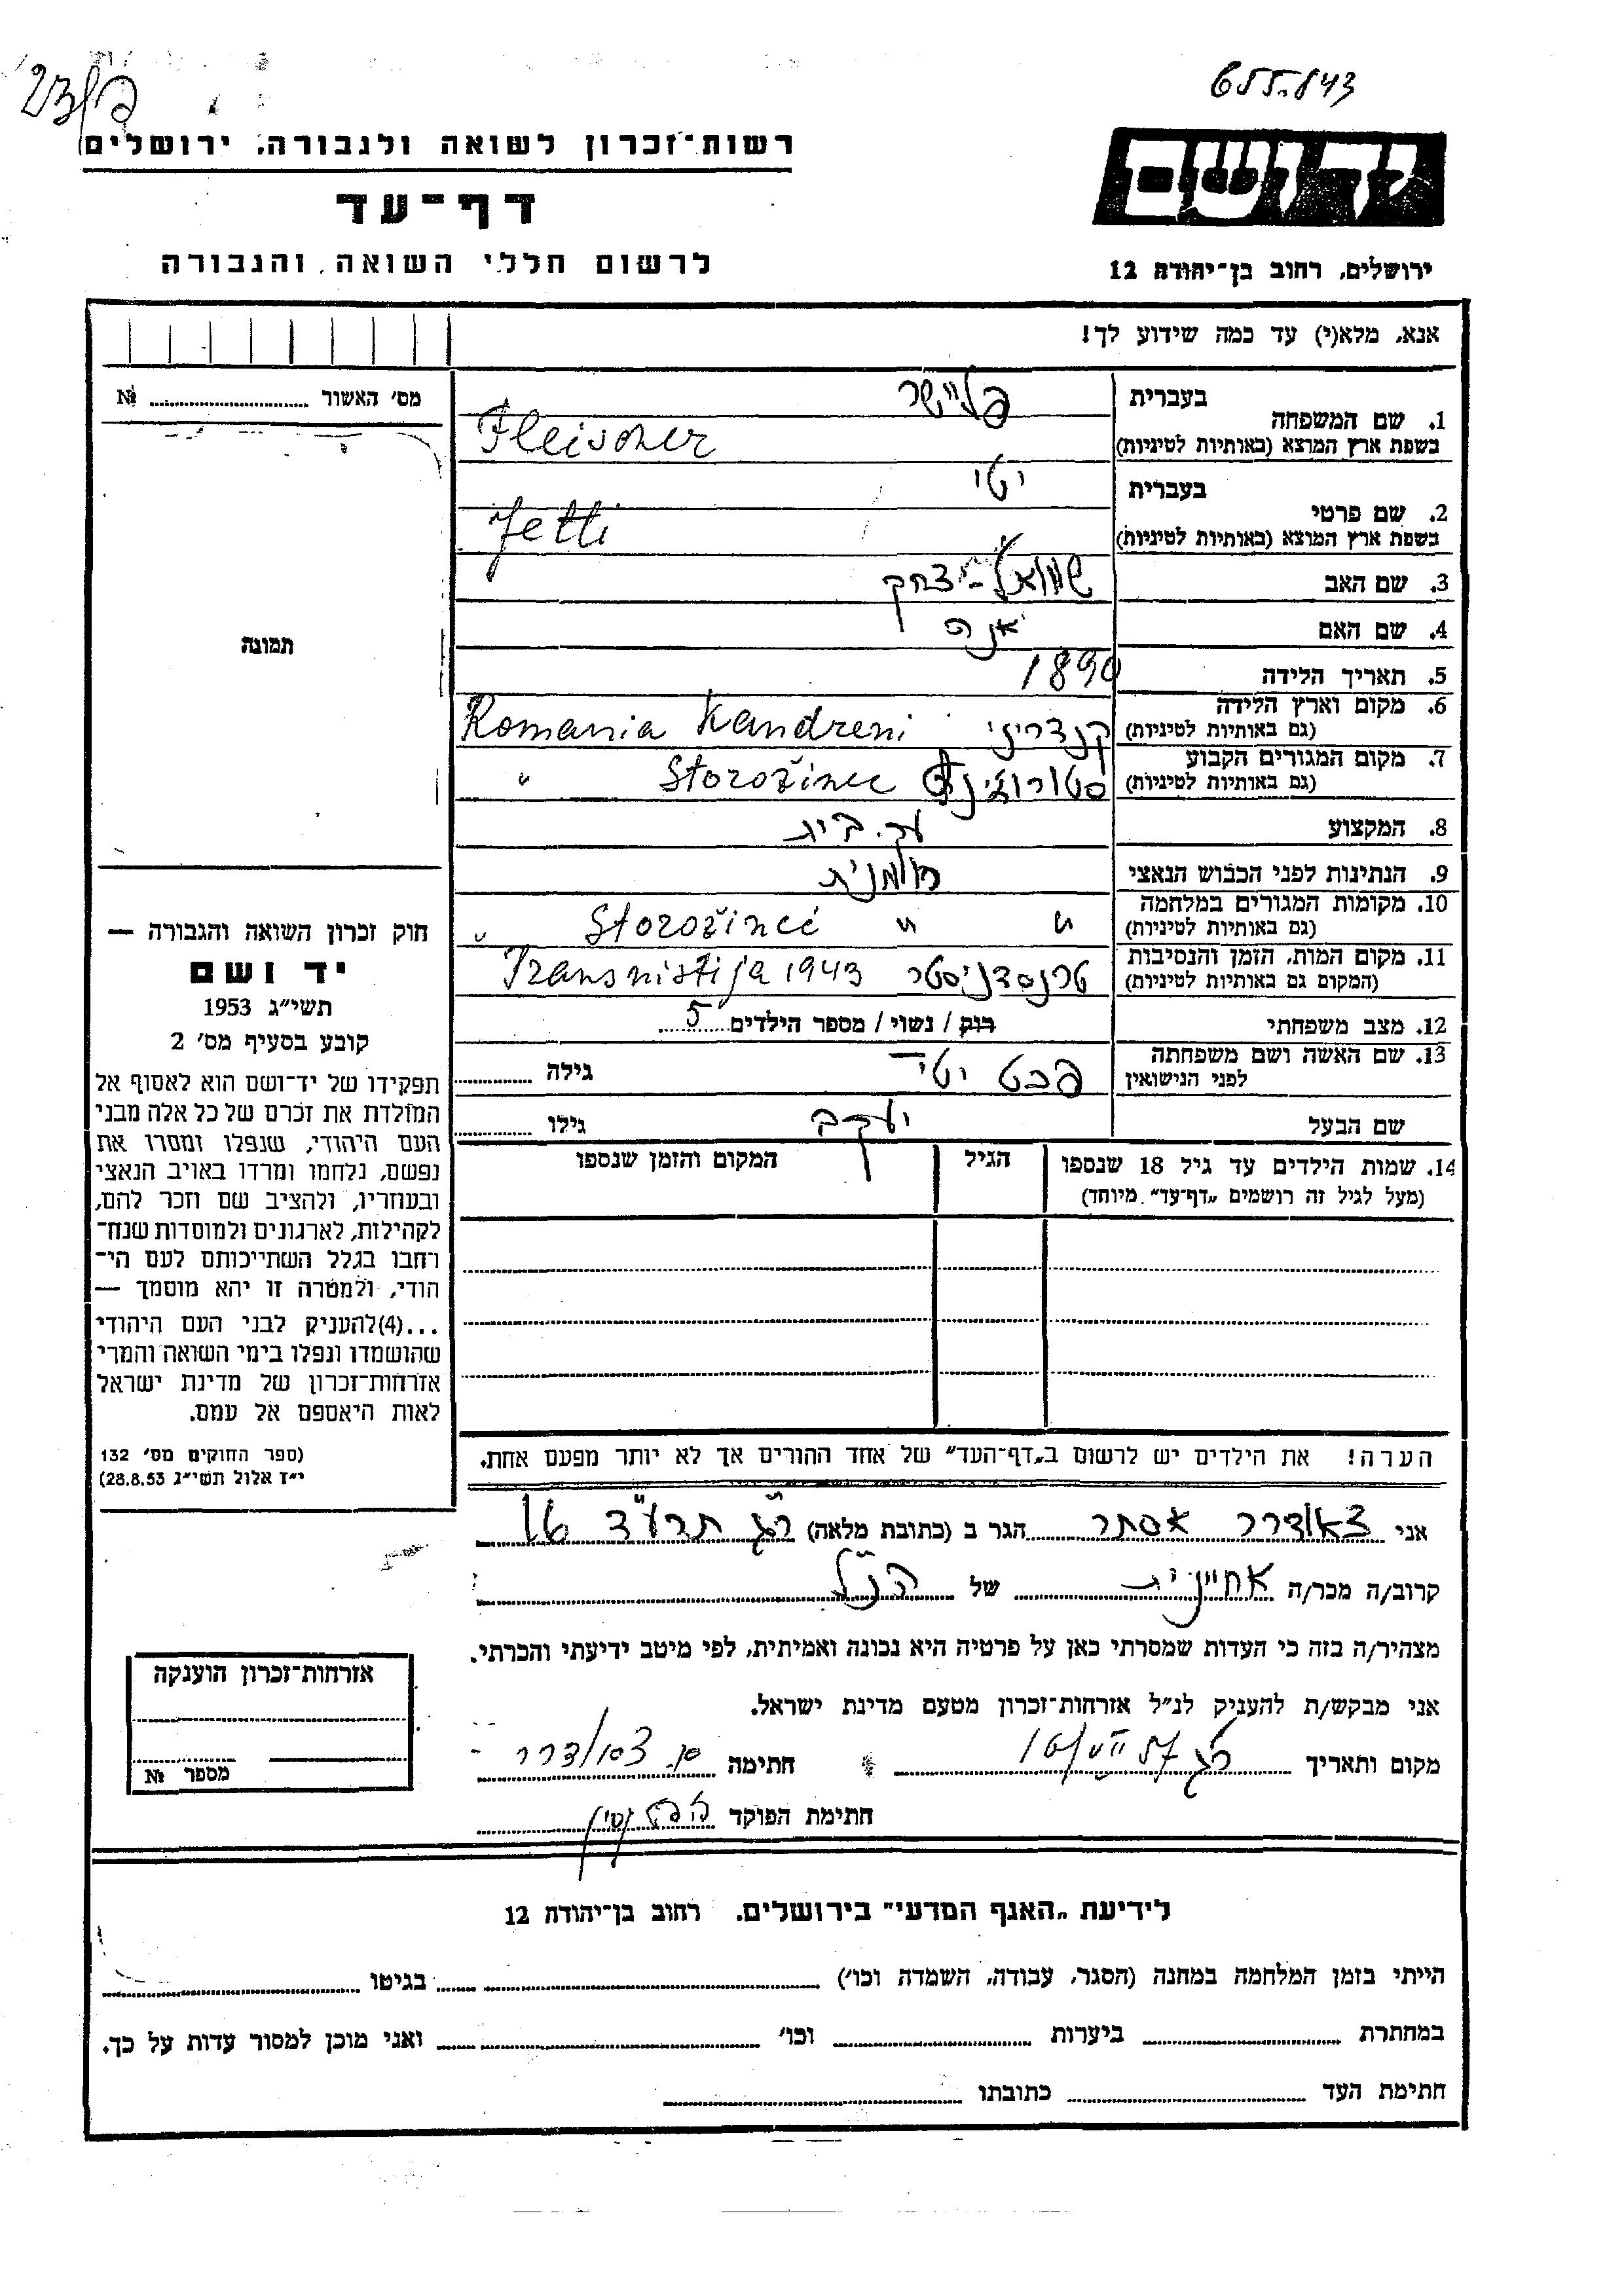 655.843
רשות־זכרון לשואה ולגבורה, ירושלים
ידושם
דף־עד
לרשום חללי השואה והגבורה
ירושלים, רחוב בן־יהודה 12
אנא, מלא(י) עד כמה שידוע לך!
מס' האשור № ....................
1. שם המשפחה
בעברית פליישר
בשפת ארץ המוצא (באותיות לטיניות) Fleischer
2. שם פרטי
בעברית יטי
בשפת ארץ המוצא (באותיות לטיניות) Jetti
3. שם האב שמואל-יצחק
4. שם האם אנה
5. תאריך הלידה 1890
6. מקום וארץ הלידה
(גם באותיות לטיניות) קנדריני Kandreni Romania
7. מקום המגורים הקבוע
(גם באותיות לטיניות) Storožinec "
8. המקצוע עק. בית
9. הנתינות לפני הכבוש הנאצי רומנית
10. מקומות המגורים במלחמה
(גם באותיות לטיניות) " " Storožineć "
11. מקום המות, הזמן והנסיבות
(המקום גם באותיות לטיניות) טרנסדניסטר Transnistija 1943
12. מצב משפחתי רוק / נשוי / מספר הילדים 5
13. שם האשה ושם משפחתה
לפני הנישואין יטי גילה ............
שם הבעל יעקב גילו ............
14. שמות הילדים עד גיל 18 שנספו
(מעל לגיל זה רושמים „דף־עד” מיוחד)
הגיל
המקום והזמן שנספו
הערה! את הילדים יש לרשום ב„דף־העד” של אחד ההורים אך לא יותר מפעם אחת.
תמונה
חוק זכרון השואה והגבורה —
יד ושם
תשי״ג 1953
קובע בסעיף מס' 2
תפקידו של יד־ושם הוא לאסוף אל
המולדת את זכרם של כל אלה מבני
העם היהודי, שנפלו ומסרו את
נפשם, נלחמו ומרדו באויב הנאצי
ובעוזריו, ולהציב שם וזכר להם,
לקהילות, לארגונים ולמוסדות שנח־
רחבו בגלל השתייכותם לעם הי־
הודי, ולמטרה זו יהא מוסמך —
...(4)להעניק לבני העם היהודי
שהושמדו ונפלו בימי השואה והמרי
אזרחות־זכרון של מדינת ישראל
לאות היאספם אל עמם.
(ספר החוקים מס' 132
י״ז אלול תשי״ג 28.8.53)
אני אסתר הגר ב (כתובת מלאה) רג תרע"ד 16
קרוב/ה מכר/ה אחיינית של הנ"ל
מצהיר/ה בזה כי העדות שמסרתי כאן על פרטיה היא נכונה ואמיתית, לפי מיטב ידיעתי והכרתי.
אני מבקש/ת להעניק לנ״ל אזרחות־זכרון מטעם מדינת ישראל.
מקום ותאריך חתימה
חתימת הפוקד
אזרחות־זכרון הוענקה
מספר №
לידיעת „האגף המדעי” בירושלים. רחוב בן־יהודה 12
הייתי בזמן המלחמה במחנה (הסגר, עבודה, השמדה וכו') ............ בגיטו ............
במחתרת ............ ביערות ............ וכו' ............ ואני מוכן למסור עדות על כך.
חתימת העד ............ כתובתו ............